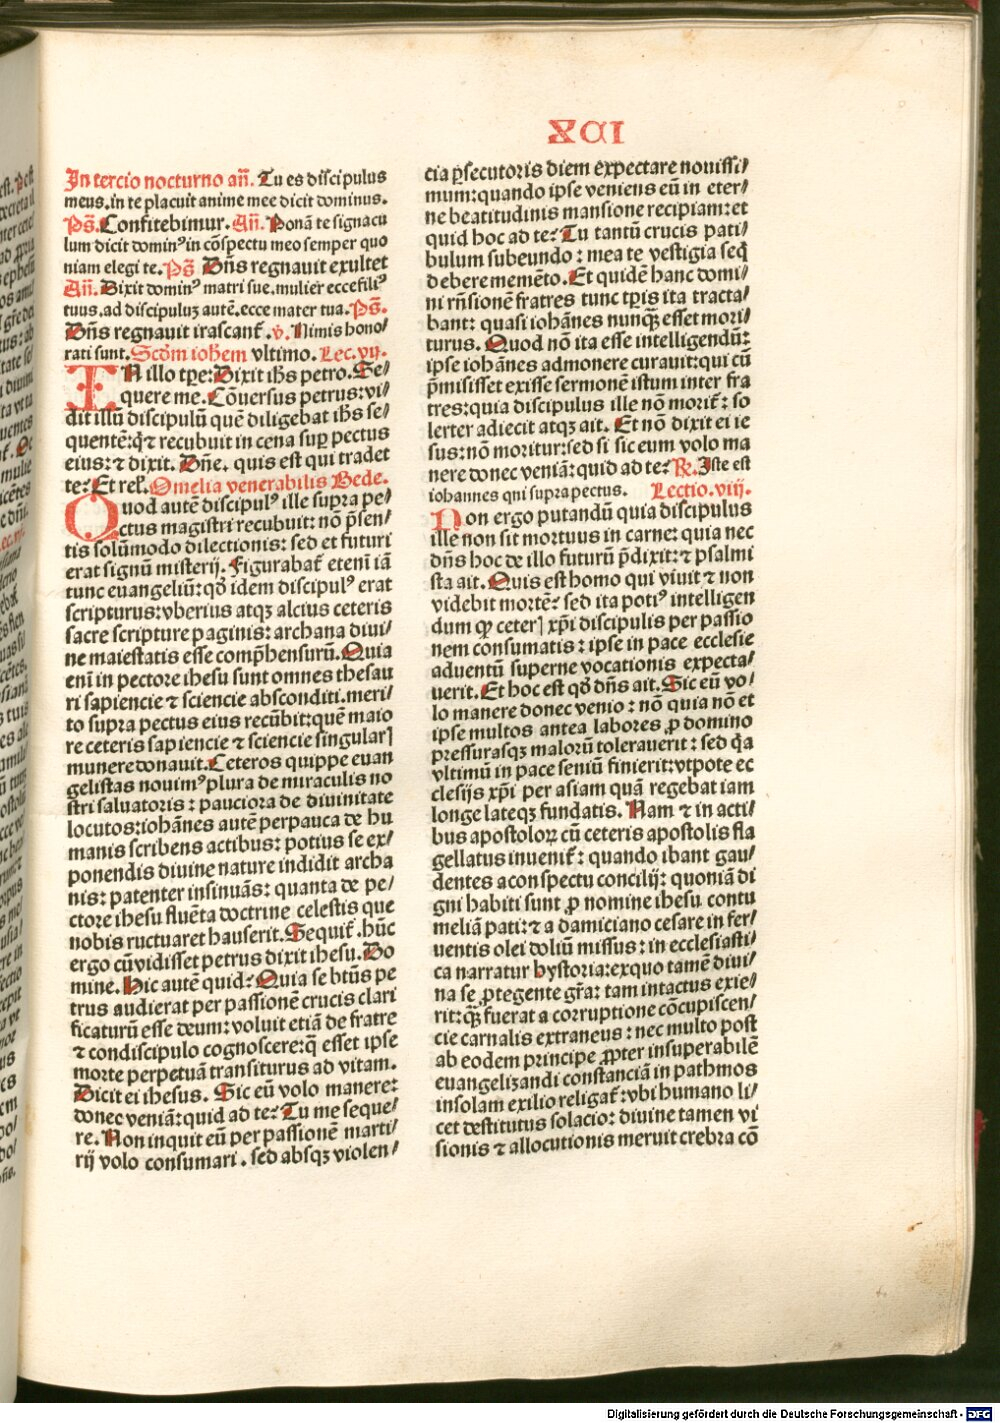 XCI
In tercio nocturno añ. Tu es discipulus
meus. in te placuit anime mee dicit dominus.
Ps̄. Confitebimur. Añ. Ponā te signacu
lum dicit dominꝰ in cōspectu meo semper quo
niam elegi te. Ps̄ Dñs regnauit exultet
Añ. Dixit dominꝰ matri sue. mulier ecce filiꝰ
tuus. ad discipuluʒ autē. ecce mater tua. Ps̄.
Dñs regnauit irascant̄. v̇. Nimis hono⸗
rati sunt. Scd̄m ioh̄em vltimo. Lec. vij.
IN illo tp̄e: Dixit ih̄s petro. Se⸗
quere me. Cōuersus petrus: vi⸗
dit illū discipulū quē diligebat ih̄s se⸗
quentē: q̄ ⁊ recubuit in cena sup̄ pectus
eius: ⁊ dixit. Dñe. quis est qui tradet
te? Et rel̄. Omelia venerabilis Bede.
Quod autē discipulꝰ ille supra pe⸗
ctus magistri recubuit: nō p̄sen⸗
tis solūmodo dilectionis: sed et futuri
erat signū misterij. Figurabat̄ etenī iā
tunc euangeliū: qď idem discipulꝰ erat
scripturus: vberius atqʒ alcius ceteris
sacre scripture paginis: archana diui⸗
ne maiestatis esse comp̄hensurū. Quia
enī in pectore ihesu sunt omnes thesau
ri sapiencie ⁊ sciencie absconditi. meri⸗
to supra pectus eius recūbit: quē maio
re ceteris sapiencie ⁊ sciencie singularꝭ
munere donauit. Ceteros quippe euan
gelistas nouimꝰ plura de miraculis no
stri saluatoris: pauciora de diuinitate
locutos: iohānes autē perpauca de hu
manis scribens actibus: potius se ex⸗
ponendis diuine nature indidit archa
nis: patenter insinuās: quanta de pe⸗
ctore ihesu fluēta doctrine celestis que
nobis ructuaret hauserit. Sequit̄. hūc
ergo cū vidisset petrus dixit ihesu. Do
mine. Hic autē quid? Quia se btūs pe
trus audierat per passionē crucis clari
ficaturū esse deum: voluit etiā de fratre
⁊ condiscipulo cognoscere: q̄ esset ipse
morte perpetuā transiturus ad vitam.
Dicit ei ihesus. Sic eū volo manere:
donec veniā: quid ad te? Tu me seque⸗
re. Non inquit eū per passionē marti⸗
rij volo consumari. sed absqʒ violen⸗
cia ꝑsecutoris diem expectare nouissi⸗
mum: quando ipse veniens eū in eter⸗
ne beatitudinis mansione recipiam: et
quid hoc ad te? Tu tantū crucis pati⸗
bulum subeundo: mea te vestigia seq̄
debere memēto. Et quidē hanc domi⸗
ni rn̄sionē fratres tunc tp̄ris ita tracta⸗
bant: quasi iohānes nunqʒ̄ esset mori⸗
turus. Quod nō ita esse intelligendū:
ipse iohānes admonere curauit: qui cū
p̄misisset exisse sermonē istum inter fra
tres: quia discipulus ille nō morit̄: so
lerter adiecit atqʒ ait. Et nō dixit ei ie
sus: nō moritur: sed si sic eum volo ma
nere donec veniā: quid ad te? R̄. Iste est
iohannes qui supra pectus. Lectio. viij.
Non ergo putandū quia discipulus
ille non sit mortuus in carne: quia nec
dñs hoc de illo futurū p̄dixit: ⁊ psalmi
sta ait. Quis est homo qui viuit ⁊ non
videbit mortē? sed ita potiꝰ intelligen
dum ꝙ ceterꝭ xp̄i discipulis per passio
nem consumatis: ipse in pace ecclesie
aduentū superne vocationis expecta⸗
uerit. Et hoc est qď dñs ait. Sic eū vo⸗
lo manere donec venio: nō quia nō et
ipse multos antea labores ꝓ domino
pressurasqʒ malorū tolerauerit: sed q̄a
vltimū in pace seniū finierit: vtpote ec
clesijs xp̄i per asiam quā regebat iam
longe lateqʒ fundatis. Nam ⁊ in acti⸗
bus apostoloꝝ cū ceteris apostolis fla
gellatus inuenit̄: quando ibant gau⸗
dentes a conspectu concilij: quoniā di
gni habiti sunt ꝓ nomine ihesu contu
meliā pati: ⁊ a damiciano cesare in fer⸗
uentis olei doliū missus: in ecclesiasti⸗
ca narratur hystoria: exquo tamē diui⸗
na se ꝓtegente gr̄a: tam intactus exie⸗
rit: qʒ̄ fuerat a corruptione cōcupiscen⸗
cie carnalis extraneus: nec multo post
ab eodem principe ꝓpter insuperabilē
euangelizandi constanciā in pathmos
insolam exilio religat̄: vbi humano li⸗
cet destitutus solacio: diuine tamen vi
sionis ⁊ allocutionis meruit crebra cō
Digitalisierung gefördert durch die Deutsche Forschungsgemeinschaft - DFG